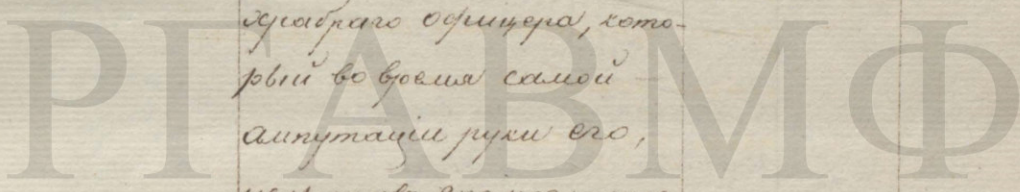 храбраго офицера, кото-
рый во время самой
ампутаціи руки его,